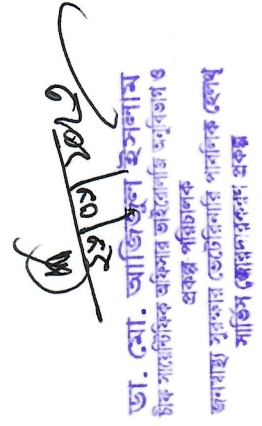 ডা. মো. আজিজুল ইসলাম
চীফ সায়েন্টিফিক অফিসার ভাইরোলজি অনুবিভাগ ও
প্রকল্প পরিচালক
জনস্বাস্থ্য সুরক্ষায় ভেটেরিনারি পাবলিক হেলথ্
সার্ভিস জোরদারকরণ প্রকল্প